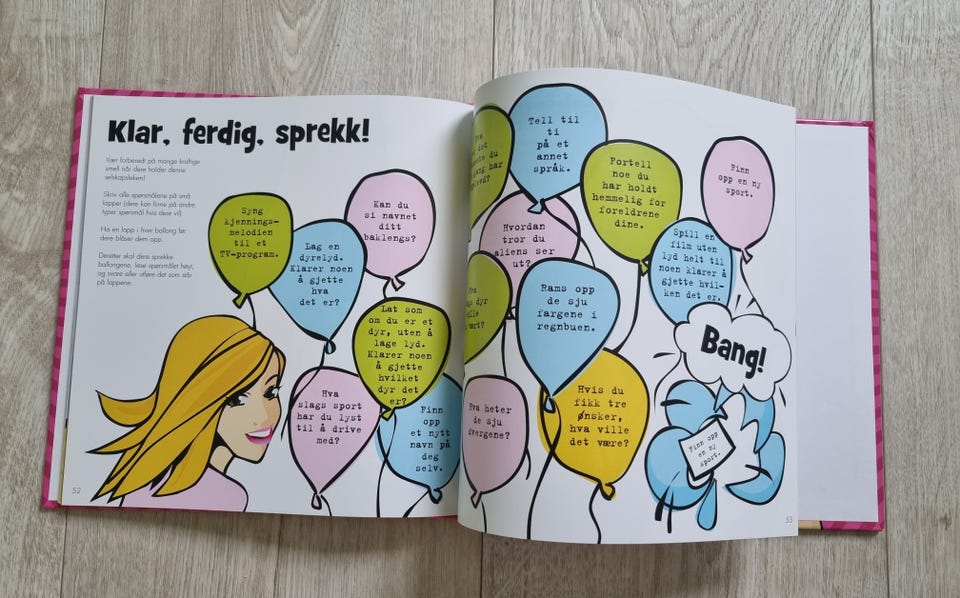 Klar, ferdig, sprekk!
Vær forberedt på mange kraftige
smell når dere holder denne
selskapsleken!
Skriv alle spørsmålene på små
lapper (dere kan finne på andre
typer spørsmål hvis dere vil).
Ha en lapp i hver ballong før
dere blåser dem opp.
Deretter skal dere sprekke
ballongene, lese spørsmålet høyt,
og svare eller utføre det som står
på lappene.
Syng
kjennings-
melodien
til et
TV-program.
Lag en
dyrelyd.
Klarer noen
å gjette
hva
det er?
Kan du
si navnet
ditt
baklengs?
Lat som
om du er et
dyr, uten å
lage lyd.
Klarer noen
å gjette
hvilket
dyr det
er?
Hva
slags sport
har du lyst
til å drive
med?
Finn
opp
et nytt
navn på
deg
selv.
52
Tell til
ti
på et
annet
språk.
Fortell
noe du
har holdt
hemmelig for
foreldrene
dine.
Finn
opp en ny
sport.
Hvordan
tror du
aliens ser
ut?
Spill en
film uten
lyd helt til
noen klarer å
gjette hvil-
ken det er.
Rams opp
de sju
fargene i
regnbuen.
Hva heter
de sju
dvergene?
Hvis du
fikk tre
ønsker,
hva ville
det være?
Bang!
Finn opp
en ny
sport.
53